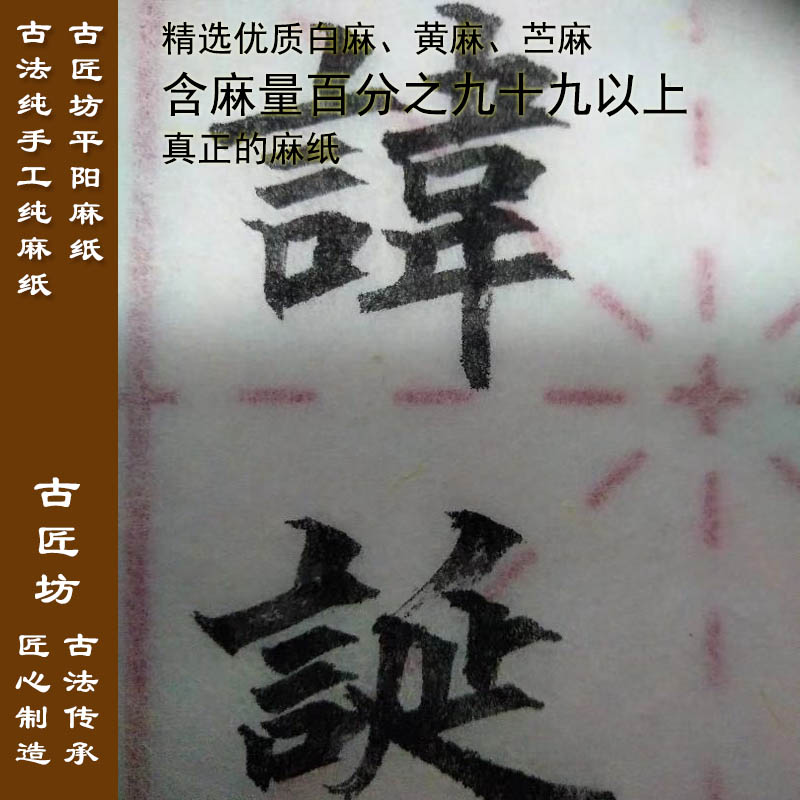 古匠坊平阳麻纸
古法纯手工纯麻纸
古匠坊
古法传承
匠心制造
精选优质白麻、黄麻、苎麻
含麻量百分之九十九以上
真正的麻纸
諱
誕